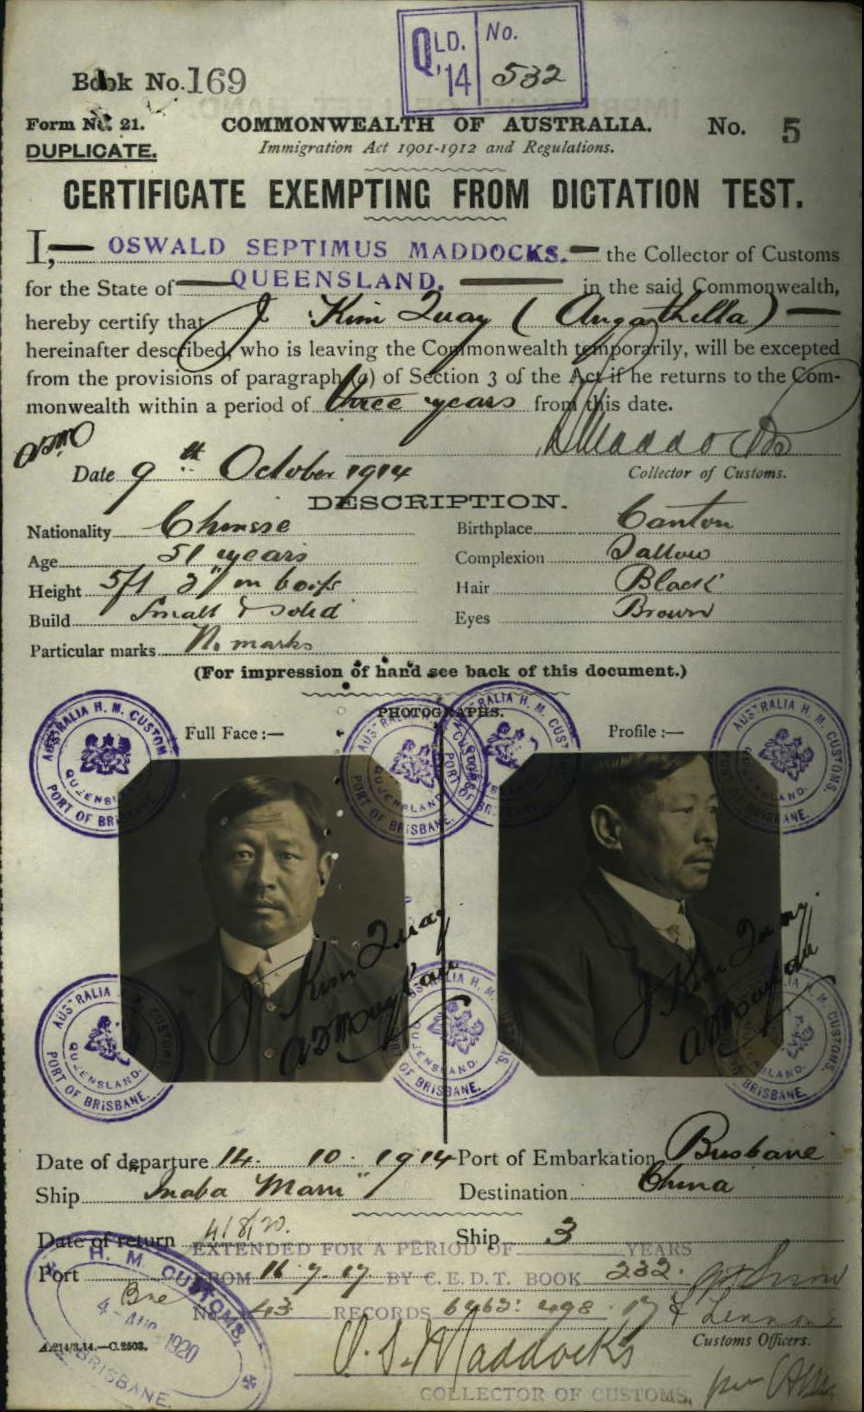 QLD. No.
'14 532
Book No. 169
Form No. 21. COMMONWEALTH OF AUSTRALIA. No. 5
DUPLICATE. Immigration Act 1901-1912 and Regulations.
CERTIFICATE EXEMPTING FROM DICTATION TEST.
I, OSWALD SEPTIMUS MADDOCKS. the Collector of Customs
for the State of QUEENSLAND. in the said Commonwealth,
hereby certify that J Kim Quay (Augathella)
hereinafter described, who is leaving the Commonwealth temporarily, will be excepted
from the provisions of paragraph (a) of Section 3 of the Act if he returns to the Com-
monwealth within a period of three years from this date.
OSM
O S Maddocks
Date 9th October 1914 Collector of Customs.
DESCRIPTION.
Nationality Chinese Birthplace Canton
Age 51 years Complexion Sallow
Height 5ft 3" in boots Hair Black
Build Small & solid Eyes Brown
Particular marks No marks
(For impression of hand see back of this document.)
PHOTOGRAPHS.
Full Face :— Profile :—
AUSTRALIA H. M. CUSTOMS. QUEENSLAND. PORT OF BRISBANE.
AUSTRALIA H. M. CUSTOMS. QUEENSLAND. PORT OF BRISBANE.
AUSTRALIA H. M. CUSTOMS. PORT OF BRISBANE.
AUSTRALIA H. M. CUSTOMS. QUEENSLAND. BRISBANE.
J Kim Quay
J Kim Quay
AUSTRALIA CUSTOMS QUEENSLAND. PORT OF BRISBANE.
AUSTRALIA H. M. CUSTOMS. QUEENSLAND. BRISBANE.
H. M. CUSTOMS. QUEENSLAND. BRISBANE.
Date of departure 14. 10. 1914 Port of Embarkation Brisbane
Ship "Inaba Maru" Destination China
Date of return 4/8/20. Ship
EXTENDED FOR A PERIOD OF 3 YEARS
Port Bne
FROM 16.7.17. BY C.E.D.T. BOOK 232.
No. 43 RECORDS
H. M. CUSTOMS.
4 - AUG 1920
BRISBANE.
A.214/3.14.—C.2503.
Customs Officers.
O. S. Maddocks
COLLECTOR OF CUSTOMS.
per